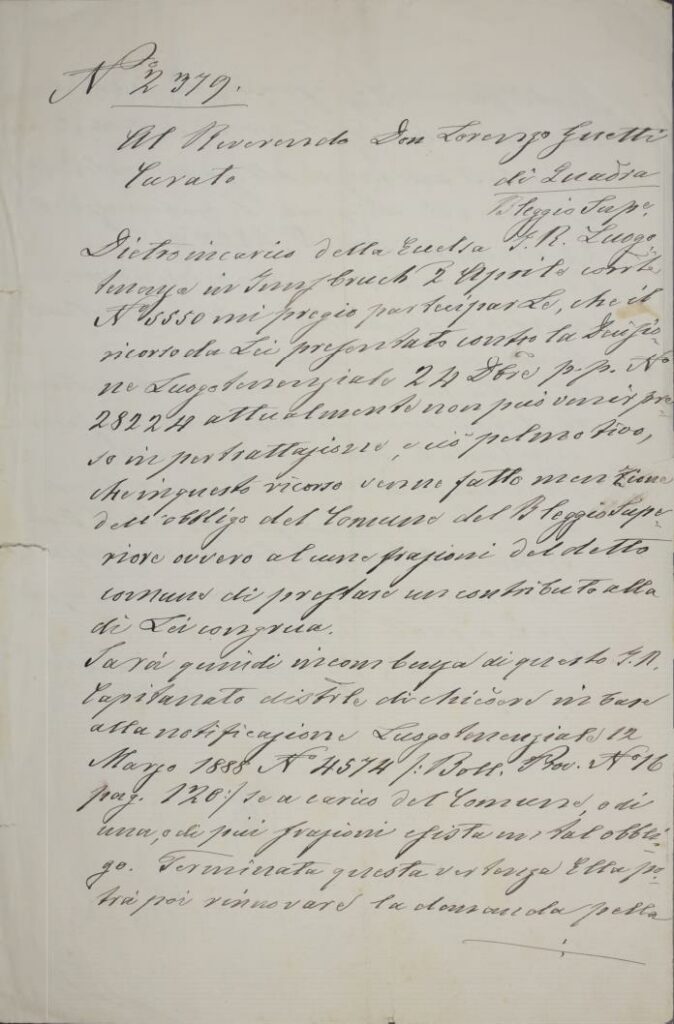 No 2379.
Al Reverendo Don Lorenzo Guetti
Curato di Quadra
Bleggio Supe.
Dietro incarico della Eccelsa I. R. Luogo-
tenenza in Innsbruck 2 Aprile corrte
No 5550 mi pregio parteciparLe, che il
ricorso da Lei presentato contro la Decisio-
ne Luogotenenziale 24 Dbre p.p. No
28224 attualmente non può venir pre-
so in pertrattazione, e ciò pel motivo,
che in questo ricorso venne fatto menzione
dell'obbligo del Comune del Bleggio Supe-
riore ovvero alcune frazioni del detto
comune di prestare un contributo alla
di Lei congrua.
Sarà quindi incombenza di questo I. R.
Capitanato distrle di chiedere in base
alla notificazione Luogotenenziale 12
Marzo 1888 No 4574 /: Boll. Prov. No 16
pag. 120:/ se a carico del Comune, o di
una, o di più frazioni esista un tal obbli-
go. Terminata questa vertenza Ella po-
trà poi rinnovare la domanda pella